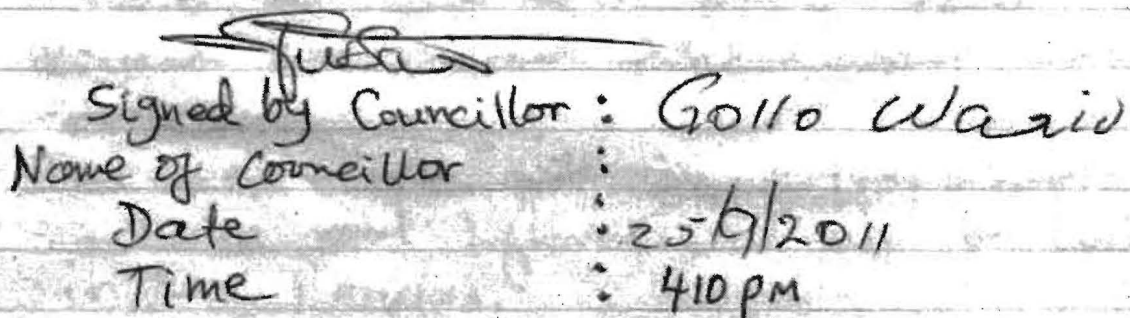 Signed by Councillor : Gollo Wario
Name of Councillor :
Date : 25/9/2011
Time : 410 PM